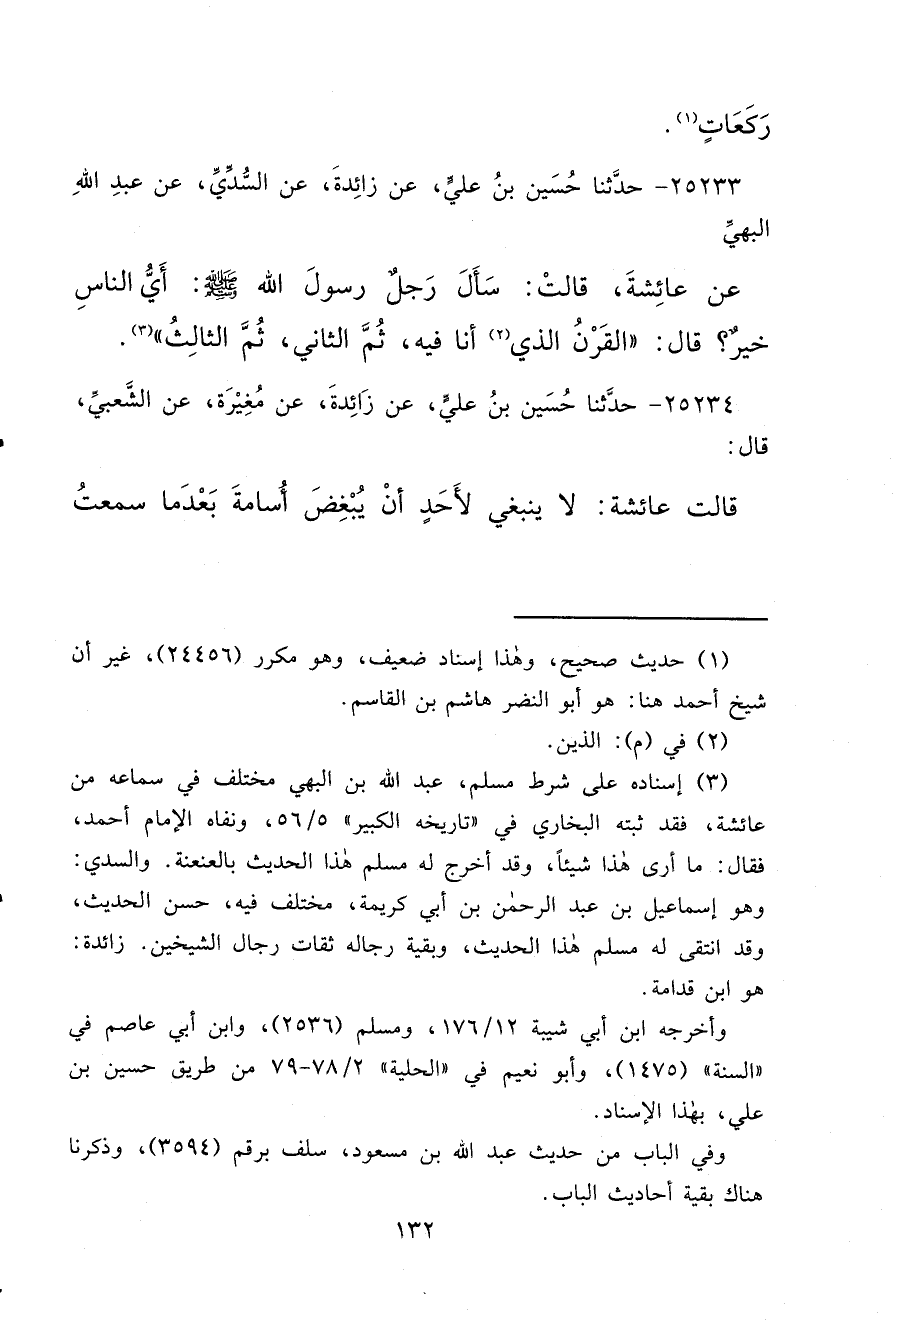 رَكَعَاتٍ(١).
٢٥٢٣٣- حدَّثنا حُسَين بنُ عليٍّ، عن زائِدةَ، عن السُّدِّيِّ، عن عبدِ اللهِ
البهيِّ
عن عائِشةَ، قالتْ: سَأَلَ رَجلٌ رسولَ الله ﷺ: أَيُّ الناسِ
خيرٌ؟ قال: «القَرْنُ الذي(٢) أنا فيه، ثُمَّ الثاني، ثُمَّ الثالِثُ»(٣).
٢٥٢٣٤- حدَّثنا حُسَين بنُ عليٍّ، عن زَائِدةَ، عن مُغِيْرَة، عن الشَّعبيِّ،
قال:
قالت عائشة: لا ينبغي لأَحَدٍ أنْ يُبْغِضَ أُسامةَ بَعْدَما سمعتُ
(١) حديث صحيح، وهٰذا إسناد ضعيف، وهو مكرر (٢٤٤٥٦)، غير أن
شيخ أحمد هنا: هو أبو النضر هاشم بن القاسم.
(٢) في (م): الذين.
(٣) إسناده على شرط مسلم، عبد الله بن البهي مختلف في سماعه من
عائشة، فقد ثبته البخاري في «تاريخه الكبير» ٥٦/٥، ونفاه الإمام أحمد،
فقال: ما أرى هٰذا شيئاً، وقد أخرج له مسلم هٰذا الحديث بالعنعنة. والسدي:
وهو إسماعيل بن عبد الرحمٰن بن أبي كريمة، مختلف فيه، حسن الحديث،
وقد انتقى له مسلم هٰذا الحديث، وبقية رجاله ثقات رجال الشيخين. زائدة:
هو ابن قدامة.
وأخرجه ابن أبي شيبة ١٧٦/١٢، ومسلم (٢٥٣٦)، وابن أبي عاصم في
«السنة» (١٤٧٥)، وأبو نعيم في «الحلية» ٧٨/٢-٧٩ من طريق حسين بن
علي، بهٰذا الإسناد.
وفي الباب من حديث عبد الله بن مسعود، سلف برقم (٣٥٩٤)، وذكرنا
هناك بقية أحاديث الباب.
١٣٢